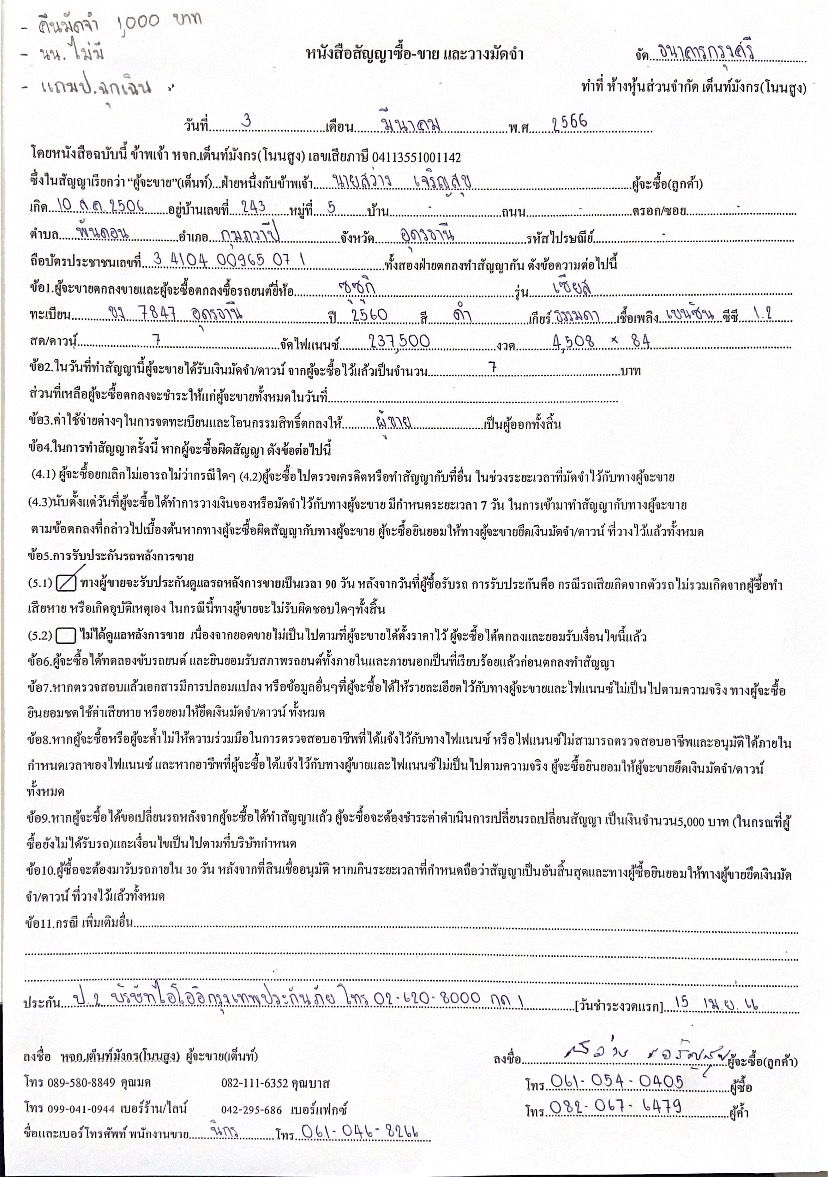 - คืนมัดจำ 1,000 บาท
- นน. ไม่มี
- แถมป.ฉุกเฉิน
หนังสือสัญญาซื้อ-ขาย และวางมัดจำ
จัด ธนาคารกรุงศรี
ทำที่ ห้างหุ้นส่วนจำกัด เต็นท์มังกร(โนนสูง)
วันที่ 3 เดือน มีนาคม พ.ศ. 2566
โดยหนังสือฉบับนี้ ข้าพเจ้า หจก.เต็นท์มังกร(โนนสูง) เลขเสียภาษี 04113551001142
ซึ่งในสัญญาเรียกว่า "ผู้จะขาย"(เต็นท์)...ฝ่ายหนึ่งกับข้าพเจ้า นายสว่าง เจริญสุข ผู้จะซื้อ(ลูกค้า)
เกิด 10 ส.ค. 2506 อยู่บ้านเลขที่ 243 หมู่ที่ 5 บ้าน - ถนน - ตรอก/ซอย
ตำบล พันดอน อำเภอ กุมภวาปี จังหวัด อุดรธานี รหัสไปรษณีย์
ถือบัตรประชาชนเลขที่ 3 4104 00965 07 1 ทั้งสองฝ่ายตกลงทำสัญญากัน ดังข้อความต่อไปนี้
ข้อ1.ผู้จะขายตกลงขายและผู้จะซื้อตกลงซื้อรถยนต์ยี่ห้อ ซูซูกิ รุ่น เซียส
ทะเบียน ขง 7847 อุดรธานี ปี 2560 สี ดำ เกียร์ ธรรมดา เชื้อเพลิง เบนซิน ซีซี 1.2
สด/ดาวน์ 7 จัดไฟแนนซ์ 237,500 งวด 4,508 × 84
ข้อ2.ในวันที่ทำสัญญานี้ผู้จะขายได้รับเงินมัดจำ/ดาวน์ จากผู้จะซื้อไว้แล้วเป็นจำนวน 7 บาท
ส่วนที่เหลือผู้จะซื้อตกลงจะชำระให้แก่ผู้จะขายทั้งหมดในวันที่
ข้อ3.ค่าใช้จ่ายต่างๆในการจดทะเบียนและโอนกรรมสิทธิ์ตกลงให้ ผู้ขาย เป็นผู้ออกทั้งสิ้น
ข้อ4.ในการทำสัญญาครั้งนี้ หากผู้จะซื้อผิดสัญญา ดังข้อต่อไปนี้
(4.1) ผู้จะซื้อยกเลิกไม่เอารถไม่ว่ากรณีใดๆ (4.2)ผู้จะซื้อไปตรวจเครดิตหรือทำสัญญากับที่อื่น ในช่วงระยะเวลาที่มัดจำไว้กับทางผู้จะขาย
(4.3)นับตั้งแต่วันที่ผู้จะซื้อได้ทำการวางเงินจองหรือมัดจำไว้กับทางผู้จะขาย มีกำหนดระยะเวลา 7 วัน ในการเข้ามาทำสัญญากับทางผู้จะขาย
ตามข้อตกลงที่กล่าวไปเบื้องต้นหากทางผู้จะซื้อผิดสัญญากับทางผู้จะขาย ผู้จะซื้อยินยอมให้ทางผู้จะขายยึดเงินมัดจำ/ดาวน์ ที่วางไว้แล้วทั้งหมด
ข้อ5.การรับประกันรถหลังการขาย
(5.1) ทางผู้ขายจะรับประกันดูแลรถหลังการขายเป็นเวลา 90 วัน หลังจากวันที่ผู้ซื้อรับรถ การรับประกันคือ กรณีรถเสียเกิดจากตัวรถ ไม่รวมเกิดจากผู้ซื้อทำ
เสียหาย หรือเกิดอุบัติเหตุเอง ในกรณีนี้ทางผู้ขายจะไม่รับผิดชอบใดๆทั้งสิ้น
(5.2) ไม่ได้ดูแลหลังการขาย เนื่องจากยอดขายไม่เป็นไปตามที่ผู้จะขายได้ตั้งราคาไว้ ผู้จะซื้อได้ตกลงและยอมรับเงื่อนไขนี้แล้ว
ข้อ6.ผู้จะซื้อได้ทดลองขับรถยนต์ และยินยอมรับสภาพรถยนต์ทั้งภายในและภายนอกเป็นที่เรียบร้อยแล้วก่อนตกลงทำสัญญา
ข้อ7.หากตรวจสอบแล้วเอกสารมีการปลอมแปลง หรือข้อมูลอื่นๆที่ผู้จะซื้อได้ให้รายละเอียดไว้กับทางผู้จะขายและไฟแนนซ์ไม่เป็นไปตามความจริง ทางผู้จะซื้อ
ยินยอมชดใช้ค่าเสียหาย หรือยอมให้ยึดเงินมัดจำ/ดาวน์ ทั้งหมด
ข้อ8.หากผู้จะซื้อหรือผู้จะค้ำไม่ให้ความร่วมมือในการตรวจสอบอาชีพที่ได้แจ้งไว้กับทางไฟแนนซ์ หรือไฟแนนซ์ไม่สามารถตรวจสอบอาชีพและอนุมัติได้ภายใน
กำหนดเวลาของไฟแนนซ์ และหากอาชีพที่ผู้จะซื้อได้แจ้งไว้กับทางผู้ขายและไฟแนนซ์ไม่เป็นไปตามความจริง ผู้จะซื้อยินยอมให้ผู้จะขายยึดเงินมัดจำ/ดาวน์
ทั้งหมด
ข้อ9.หากผู้จะซื้อได้ขอเปลี่ยนรถหลังจากผู้จะซื้อได้ทำสัญญาแล้ว ผู้จะซื้อจะต้องชำระค่าดำเนินการเปลี่ยนรถเปลี่ยนสัญญา เป็นเงินจำนวน5,000 บาท (ในกรณที่ผู้
ซื้อยังไม่ได้รับรถ)และเงื่อนไขเป็นไปตามที่บริษัทกำหนด
ข้อ10.ผู้ซื้อจะต้องมารับรถภายใน 30 วัน หลังจากที่สินเชื่ออนุมัติ หากเกินระยะเวลาที่กำหนดถือว่าสัญญาเป็นอันสิ้นสุดและทางผู้ซื้อยินยอมให้ทางผู้ขายยึดเงินมัด
จำ/ดาวน์ ที่วางไว้แล้วทั้งหมด
ข้อ11.กรณี เพิ่มเติมอื่น
ประกัน ป.2 บริษัทไอโออิกรุงเทพประกันภัย โทร 02-620-8000 กด 1 [วันชำระงวดแรก] 15 เม.ย. 66
ลงชื่อ หจก.เต็นท์มังกร(โนนสูง) ผู้จะขาย(เต็นท์)
ลงชื่อ สว่าง เจริญสุข ผู้จะซื้อ(ลูกค้า)
โทร 089-580-8849 คุณมด 082-111-6352 คุณบาส
โทร 061-054-0405 ผู้ซื้อ
โทร 099-041-0944 เบอร์ร้าน/ไลน์ 042-295-686 เบอร์แฟกซ์
โทร 082-067-6479 ผู้ค้ำ
ชื่อและเบอร์โทรศัพท์ พนักงานขาย นิกร โทร 061-046-8266